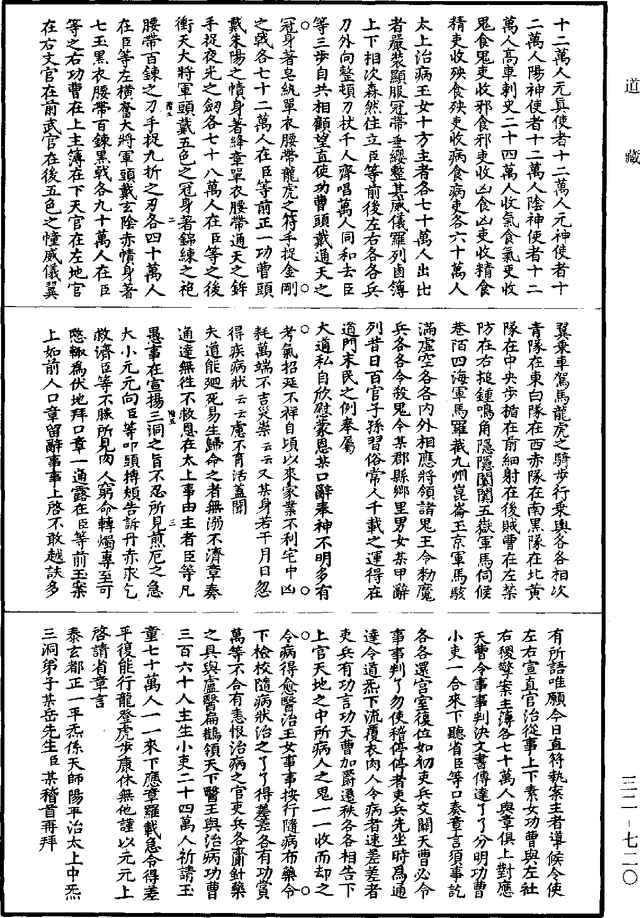 道藏
十二萬人元眞使者十二萬人元神使者十
二萬人陽神使者十二萬人陰神使者十二
萬人高車刺史二十四萬人收氣食氣吏收
鬼食鬼吏收邪食邪吏收凶食凶吏收精食
精吏收殃食殃吏收病食病吏各六十萬人
太上治病玉女十方主者各七十萬人出比
者嚴裝顯服冠帶垂纓整其威儀羅列鹵簿
上下相次森然住立臣等前後左右各各兵
刀外向整頓刀杖千人齊唱萬人同和去臣
等三步自共相顧望直使功曹頭戴通天之
冠身著皂紈單衣腰帶龍虎之符手捉金剛
之戟各七十二萬人在臣等前正一功曹頭
戴朱陽之幘身著絳章單衣腰帶通天之鉾
手捉夜光之劒各七十八萬人在臣等之後
衝天大將軍頭戴五色之冠身著錦練之袍
腰帶百鍊之刀手捉九折之刃各四十萬人
在臣等左橫奮大將軍頭戴玄陰赤幘身著
七玉黑衣腰帶百鍊黑戟各九十萬人在臣
等之右功曹在上主簿在下天官在左地官
在右文官在前武官在後五色之幢威儀翼
翼乘車駕馬龍虎之騎步行乘輿各各相次
青隊在東白隊在西赤隊在南黑隊在北黃
隊在中央步楯在前細射在後賊曹在左禁
防在右搥鍾鳴角隱隱闐闐五嶽軍馬伺候
巷陌四海軍馬羅截九州崑崙玉京軍馬駭
滿虛空各各內外相應將領諸鬼王令勑魔
兵各各令殺鬼令某郡縣鄉里男女某甲辭
列昔日百官子孫習俗常人千載之運得在
道門末民之例奉屬
大道私自欣慰蒙恩某口辭奉神不明多有
考氣招延不祥自頃以來家業不利宅中凶
耗萬端不吉災祟云云又某身若干月日忽
得疾病狀云云慮不育活蓋聞
夫道能廻死易生歸命之者無溺不濟章奏
通達無往不救恩在太上事由主者臣等凡
愚事在宣揚三洞之旨不忍所見煎厄之急
大小元元向臣等叩頭摶頰告訴丹赤求乞
救濟臣等不勝所見肉人窮命轉燭專至可
愍輙爲伏地拜口章一通露在臣等前玉案
上如前人口章留辭事事上啓不敢越訣多
有所語唯願今日直符執案主者導候令使
左右宣直官治從事上下素女功曹與左社
右稷擎案主簿各七十萬人與章俱上對應
天曹令事事判決文書傳達了了分明功曹
小吏一合來下聽省臣等口奏章言須事訖
各各還宮室復位如初吏兵文關天曹必令
事事判了勿使稽停停者吏兵先坐時爲通
達令道炁下流覆衣肉人令病者速差差者
吏兵有功言功天曹加爵遷秩各各相告下
上官天地之中所病人之鬼一一收而却之
令病得愈醫治王女事事按行隨病布藥令
下檢校隨病狀治之了了得差差各有功賞
萬等不合有恚恨治病之官吏兵各各齎針藥
之具與盧醫扁鵲領天下醫王與治病功曹
三百六十人主生小吏二十四萬人祈請玉
童七十萬人一一來下應章羅載急令得差
平復能行龍登虎步康休無他謹以元元上
啓請省章言
泰玄都正一平炁係天師陽平治太上中炁
三洞弟子某岳先生臣某稽首再拜
三二-七二〇